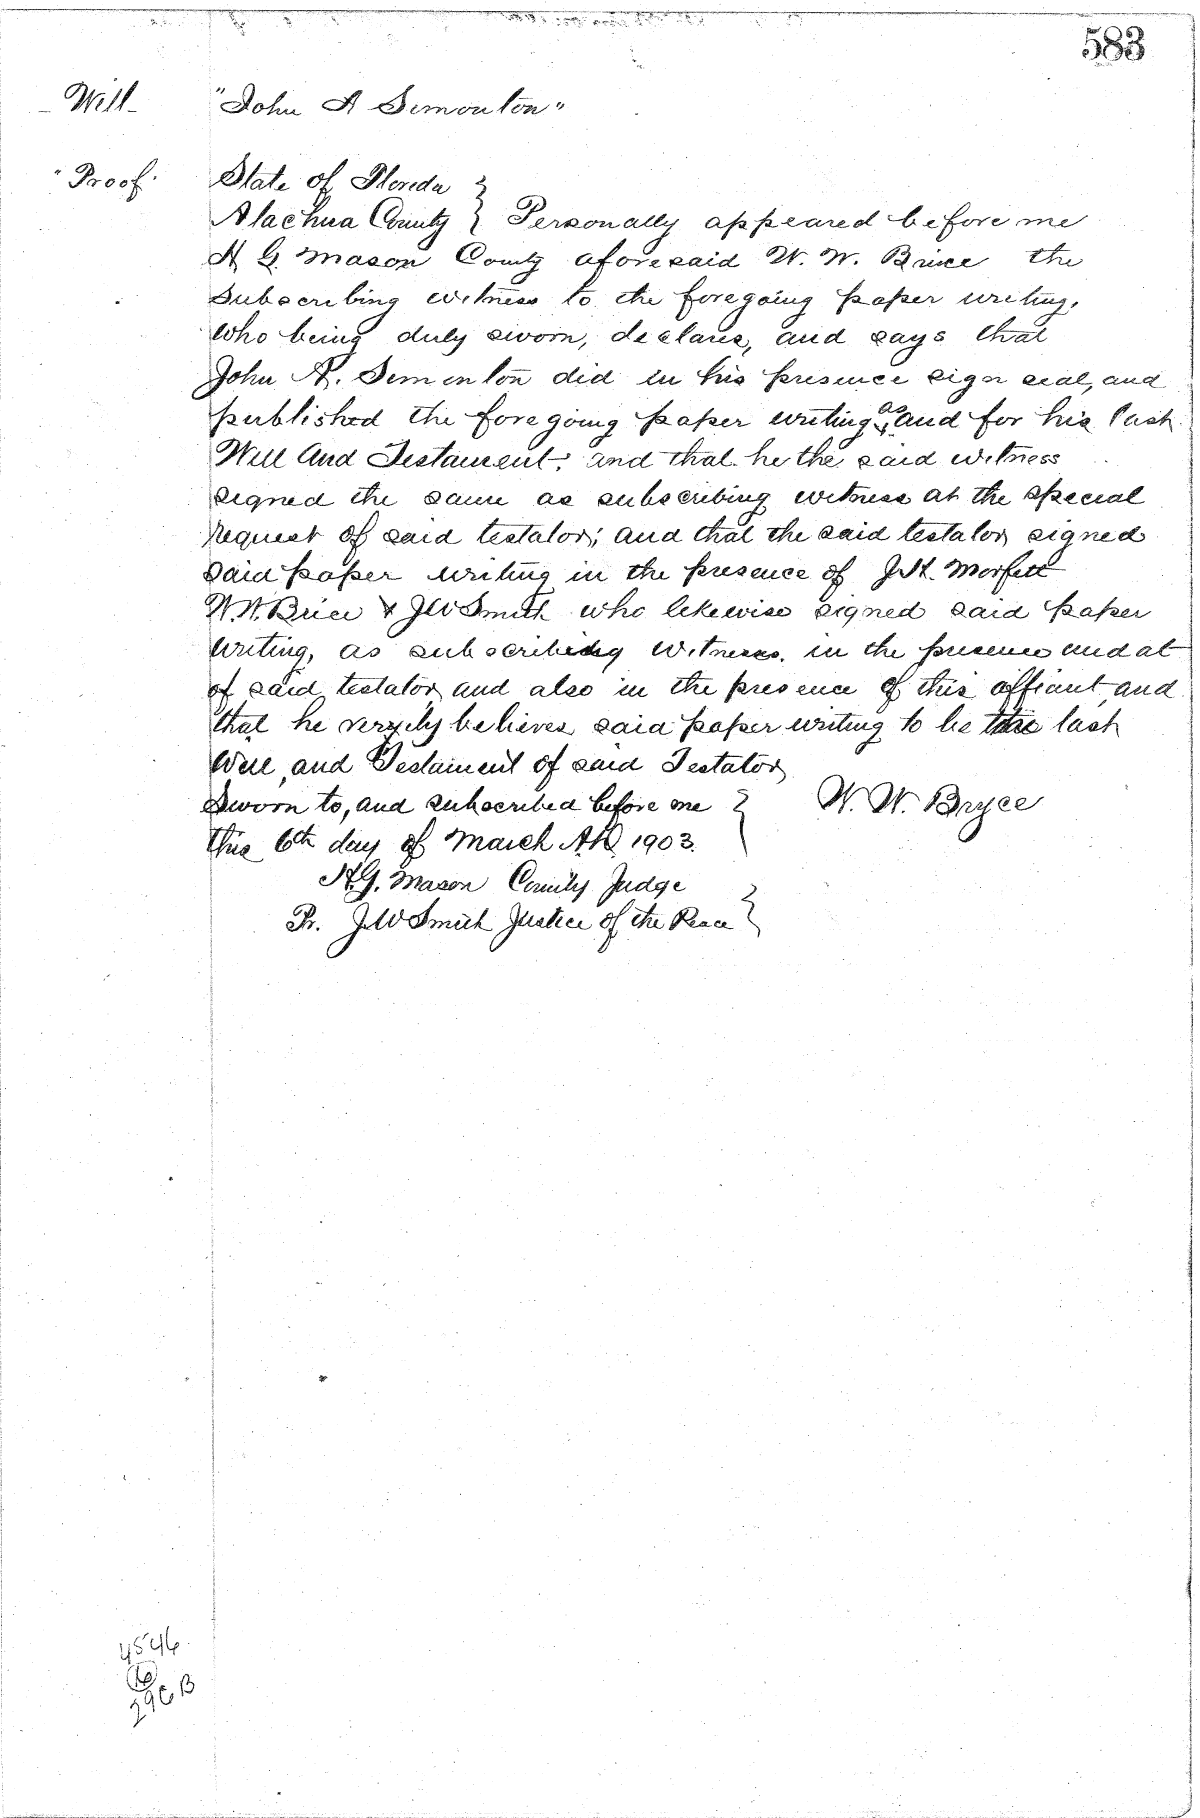 583
Will "John A Simonton"
"Proof" State of Florida }
Alachua County } Personally appeared before me
H. G. Mason County aforesaid W. W. Brice the
subscribing witness to the foregoing paper writing,
who being duly sworn, declares, and says that
John A. Simonton did in his presence sign seal, and
published the foregoing paper writing, as and for his last
Will And Testament; and that he the said witness
signed the same as subscribing witness at the special
request of said testator; and that the said testator signed
said paper writing in the presence of J. H. Morfett
W. W. Brice & J W Smith who likewise signed said paper
writing, as subscribing witness, in the presence and at
of said testator, and also in the presence of this affiant, and
that he verily believes said paper writing to be the last
Will, and Testament of said Testator,
Sworn to, and subscribed before me } W. W. Bryce
this 6th day of March A.D. 1903.
H. G. Mason County Judge
Pr. J. W Smith Justice of the Peace }
4546
296 B